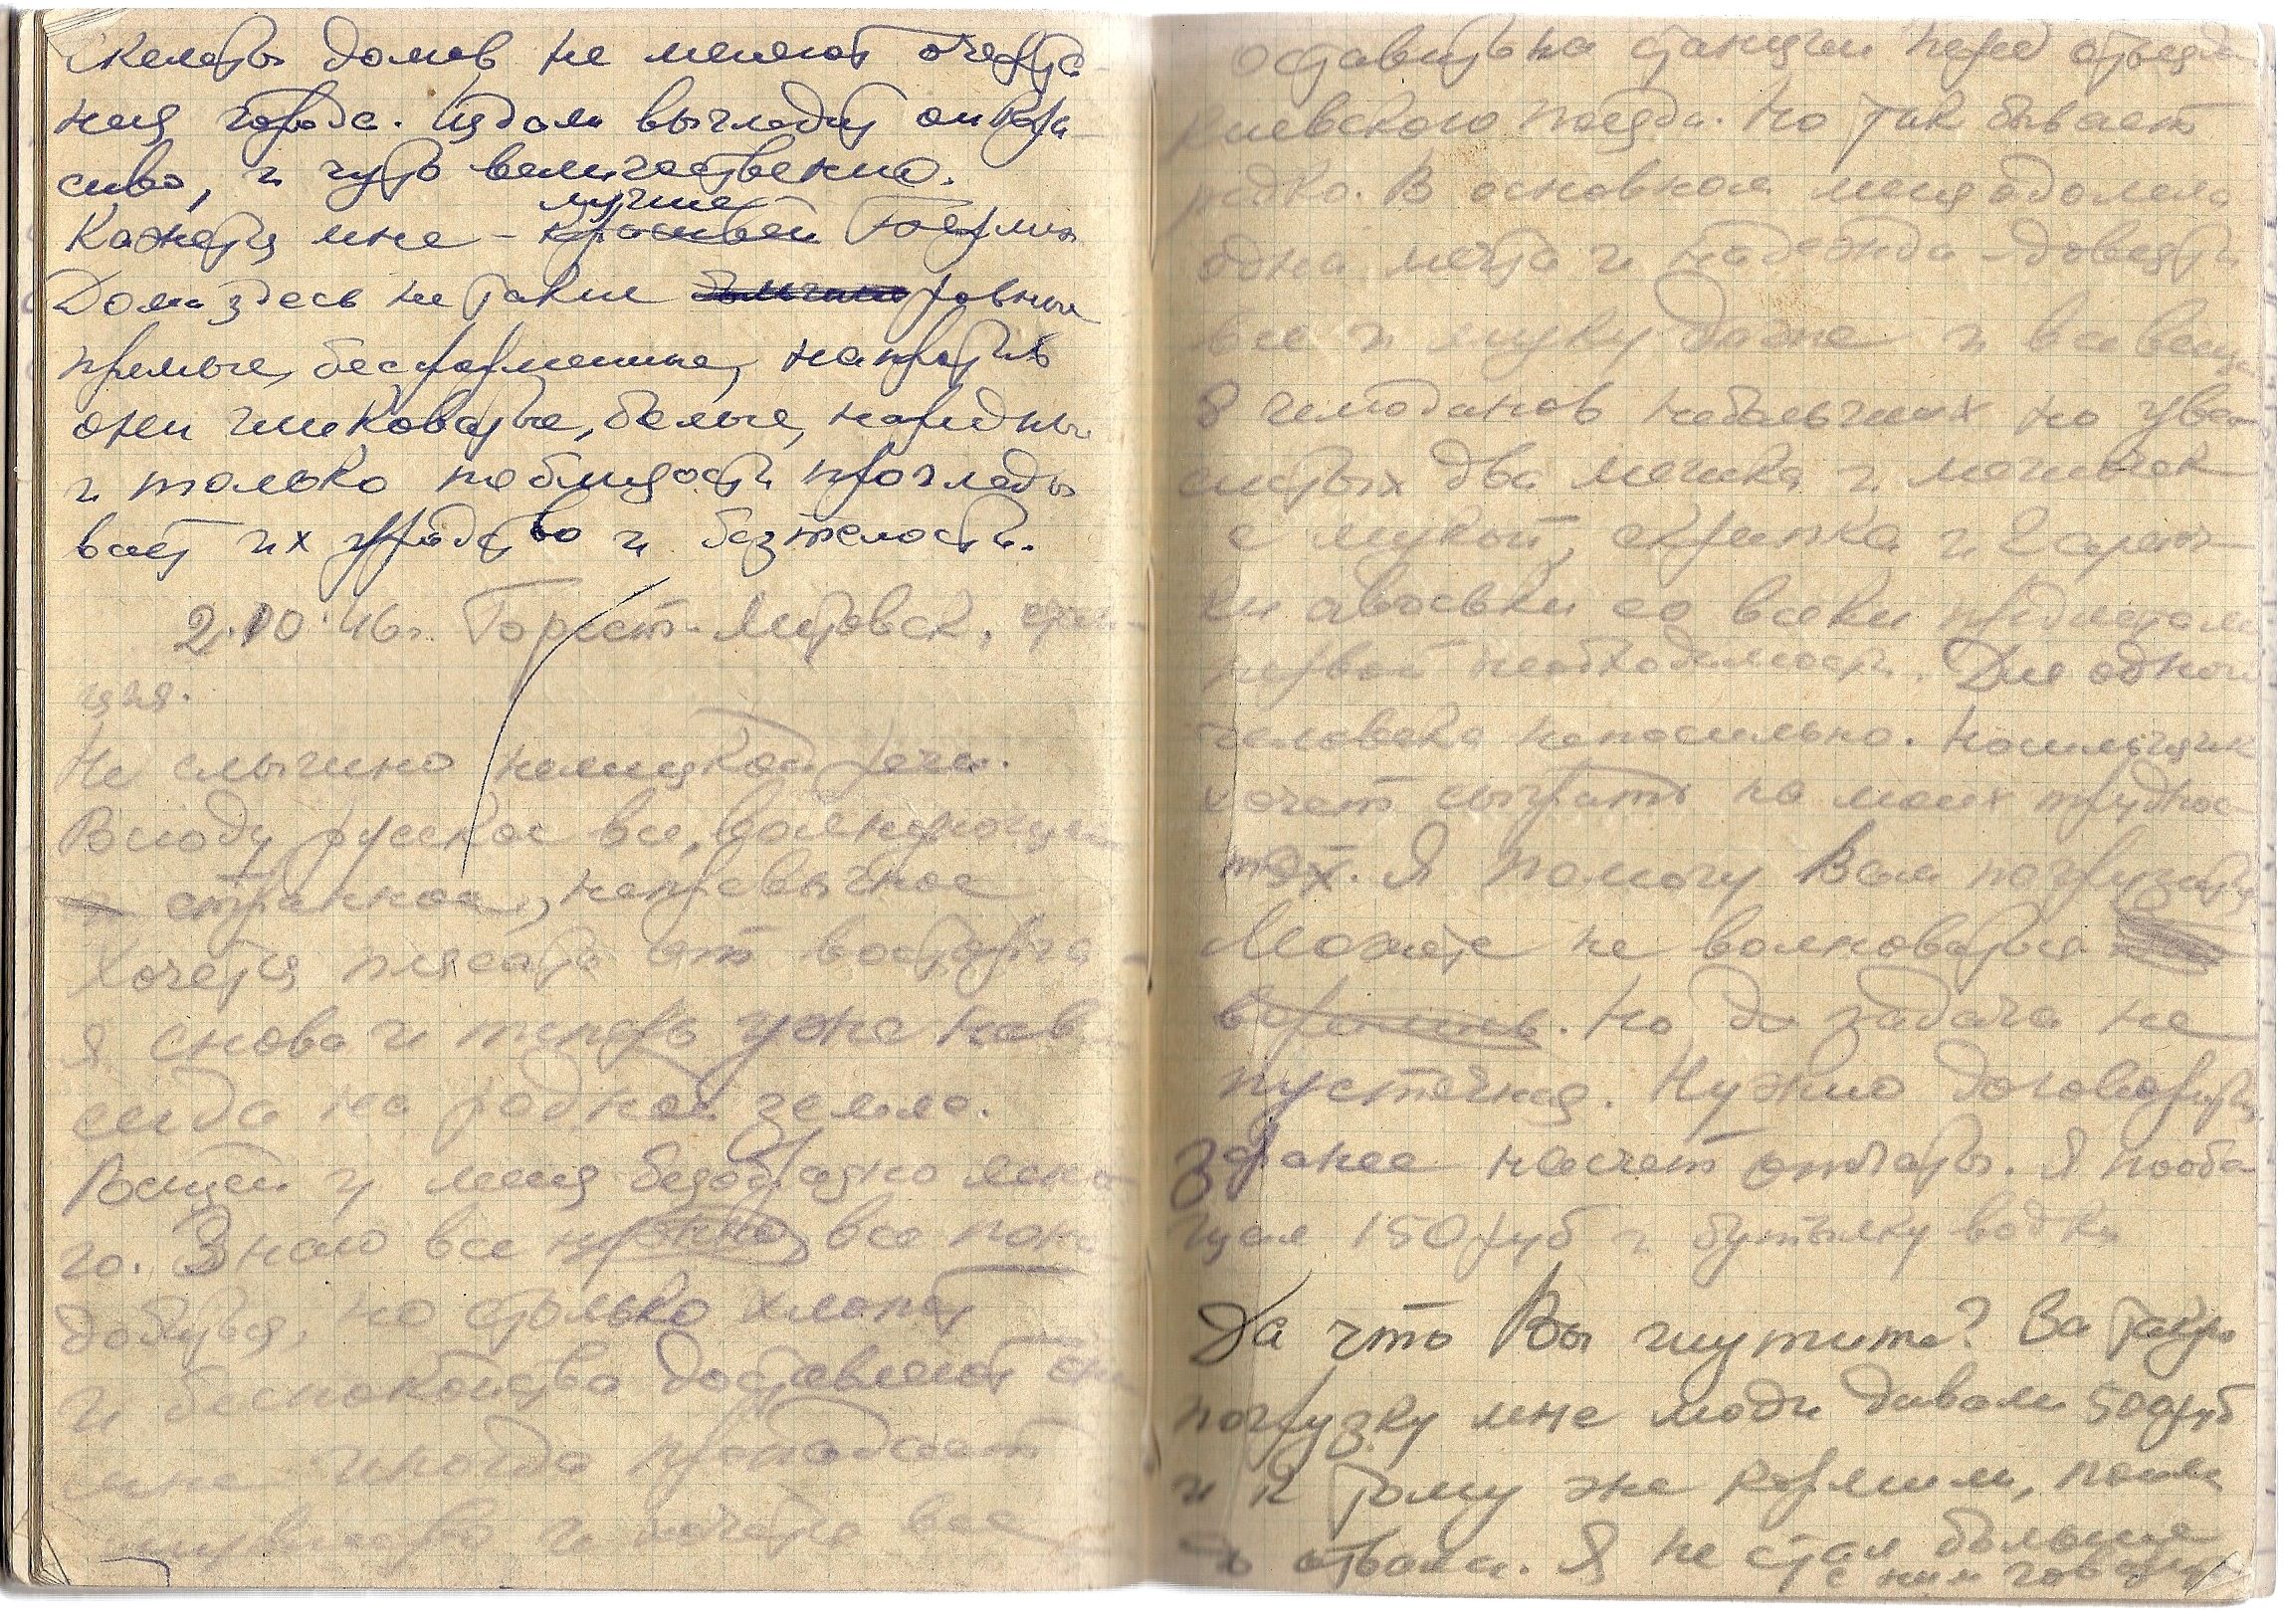 Скелеты домов не меняют очерта-
ния города. Издали выглядит он кра-
сиво, и чуть величественно.
лучше
Кажется мне – красивей Берлина
Дома здесь не такие ровные
прямые, бесформенные, напротив
они шиковатые, белые, нарядные
и только поблизости прогляды
вает их уродство и безтелость.
2.10.46г. Торест-Литовск, стан-
ция.
Не слышно немецкой речи.
Всюду русское все, волнующее
и странное, непревычное
Хочется плясать от восторга –
я снова и теперь уже нав
сегда на родной земле.
Вещей у меня безобразно мно
го. Знаю все нужно, все пона
добиться, но столько хлопот
и беспокойства доставляют они
мне иногда пропадает
и мечтать все
Оставить на станции перед отъездом
киевского поезда. Но так бывает
редко. В основном меня одолела
одна мечта и надежда – довезти
все и муку даже и все вещи
8 чемоданов небольших но уве
систых два мешка и мешочек
с мукой, скрипка и 2 
ки авоськи со всеки предметами
первой необходимости. Для одного
человека непосильно. Носильщик
хочет сыграть на моих труднос
тях. Я помогу Вам погрузиться
Можете не волноваться
Но да задача не
пустячная. Нужно договориться
Заранее насчет оплаты. Я пообе
щал 150 руб и бутылку водки
Да что Вы шутите? За такую
погрузку мне люди давали 500 руб
и к тому же кормили, поили
до отвала. Я не стал больше
с ним говорить